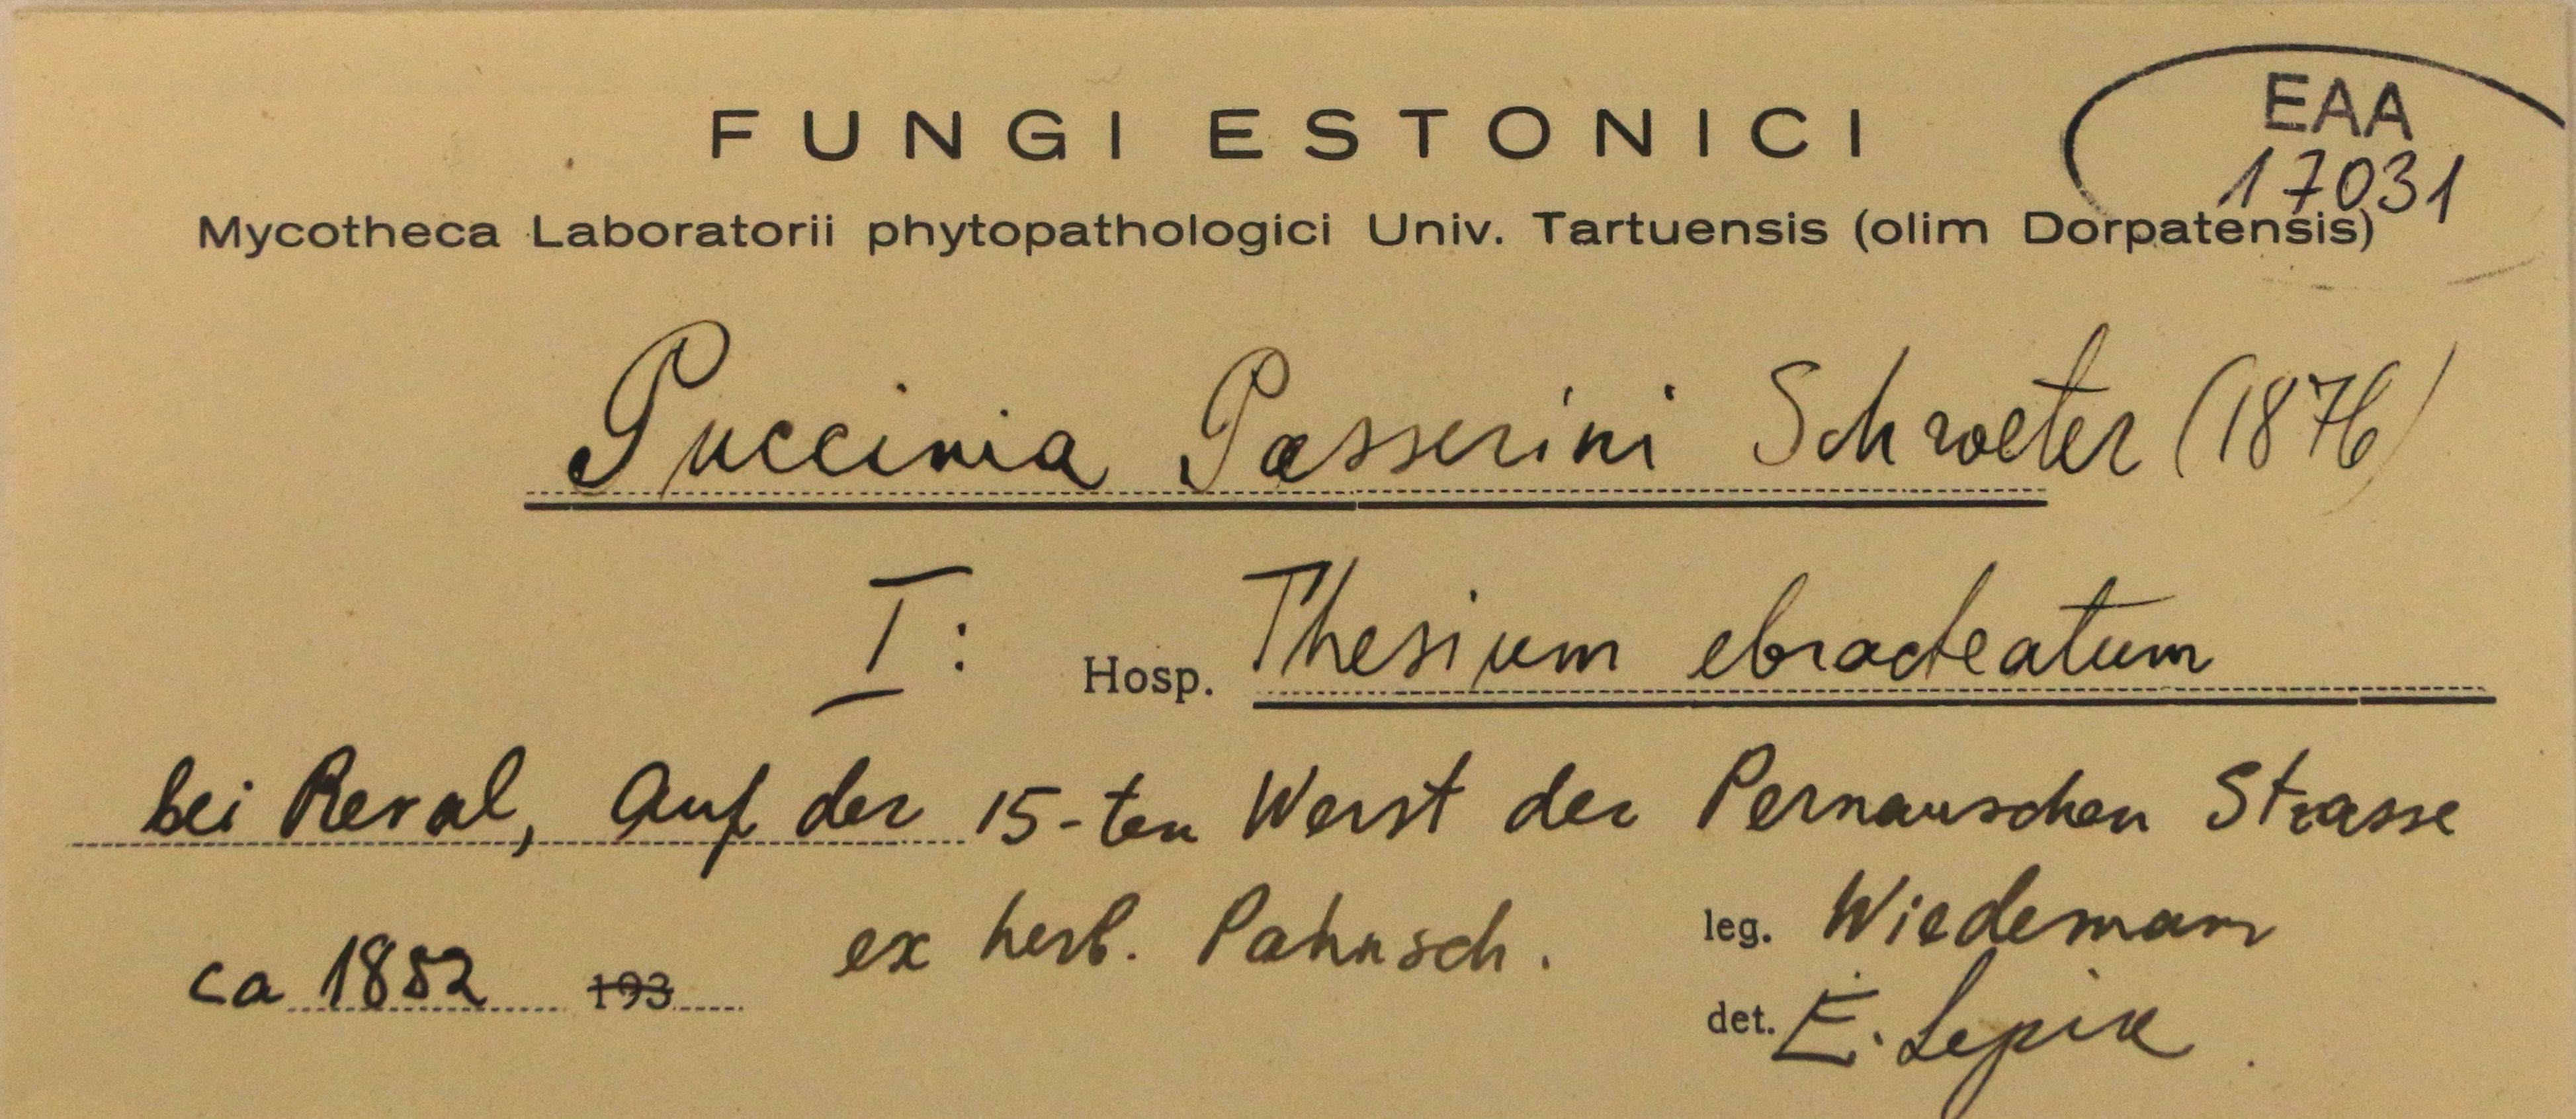 FUNGI ESTONICI
EAA
17031
Mycotheca Laboratorii phytopathologici Univ. Tartuensis (olim Dorpatensis)
Puccinia Passerini Schroeter (1876)
I: Hosp. Thesium ebracteatum
bei Reval, Auf der 15-ten Werst der Pernauschen Strasse
ex herb. Pahnsch. leg. Wiedemann
ca 1852 193
det. E. Lepik